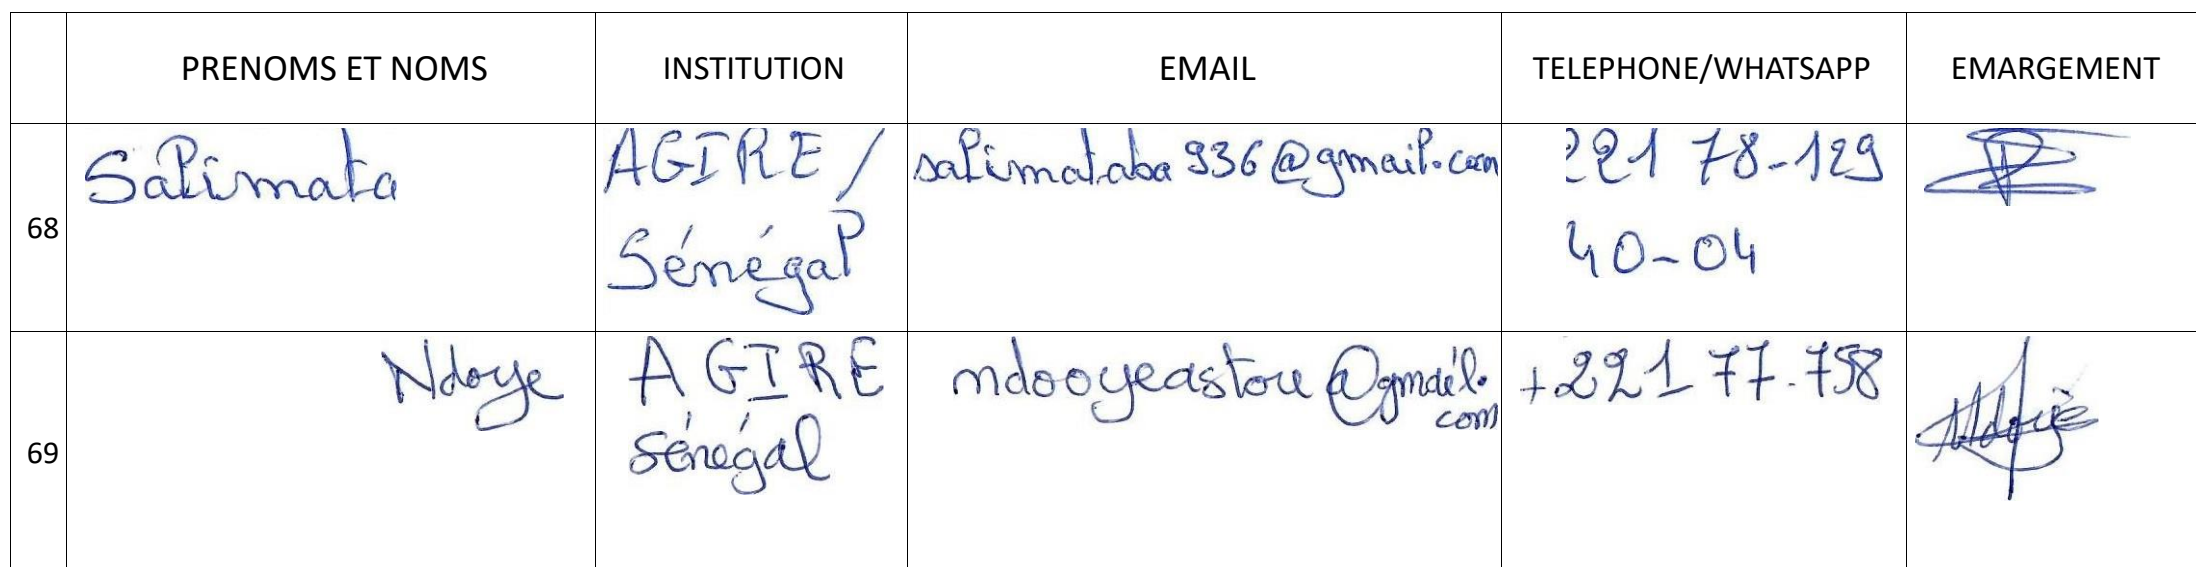 PRENOMS ET NOMS INSTITUTION EMAIL TELEPHONE/WHATSAPP EMARGEMENT
68 Salimata AGIRE / Sénégal salimataba936@gmail.com 221 78-129 40-04
69 Ndoye AGIRE Sénégal ndooyeastou@gmail.com +221 77.758 Ndoye